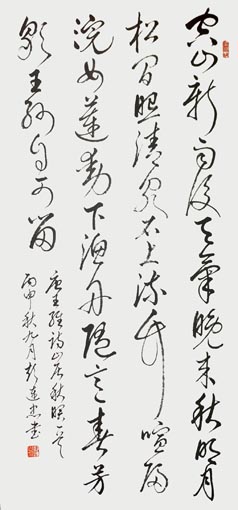 空山新雨後天氣晚来秋明月
松間照清泉石上流竹喧歸
浣女蓮動下漁舟随意春芳
歇王孫自可留
唐王維詩山居秋暝一首
丙申秋九月書